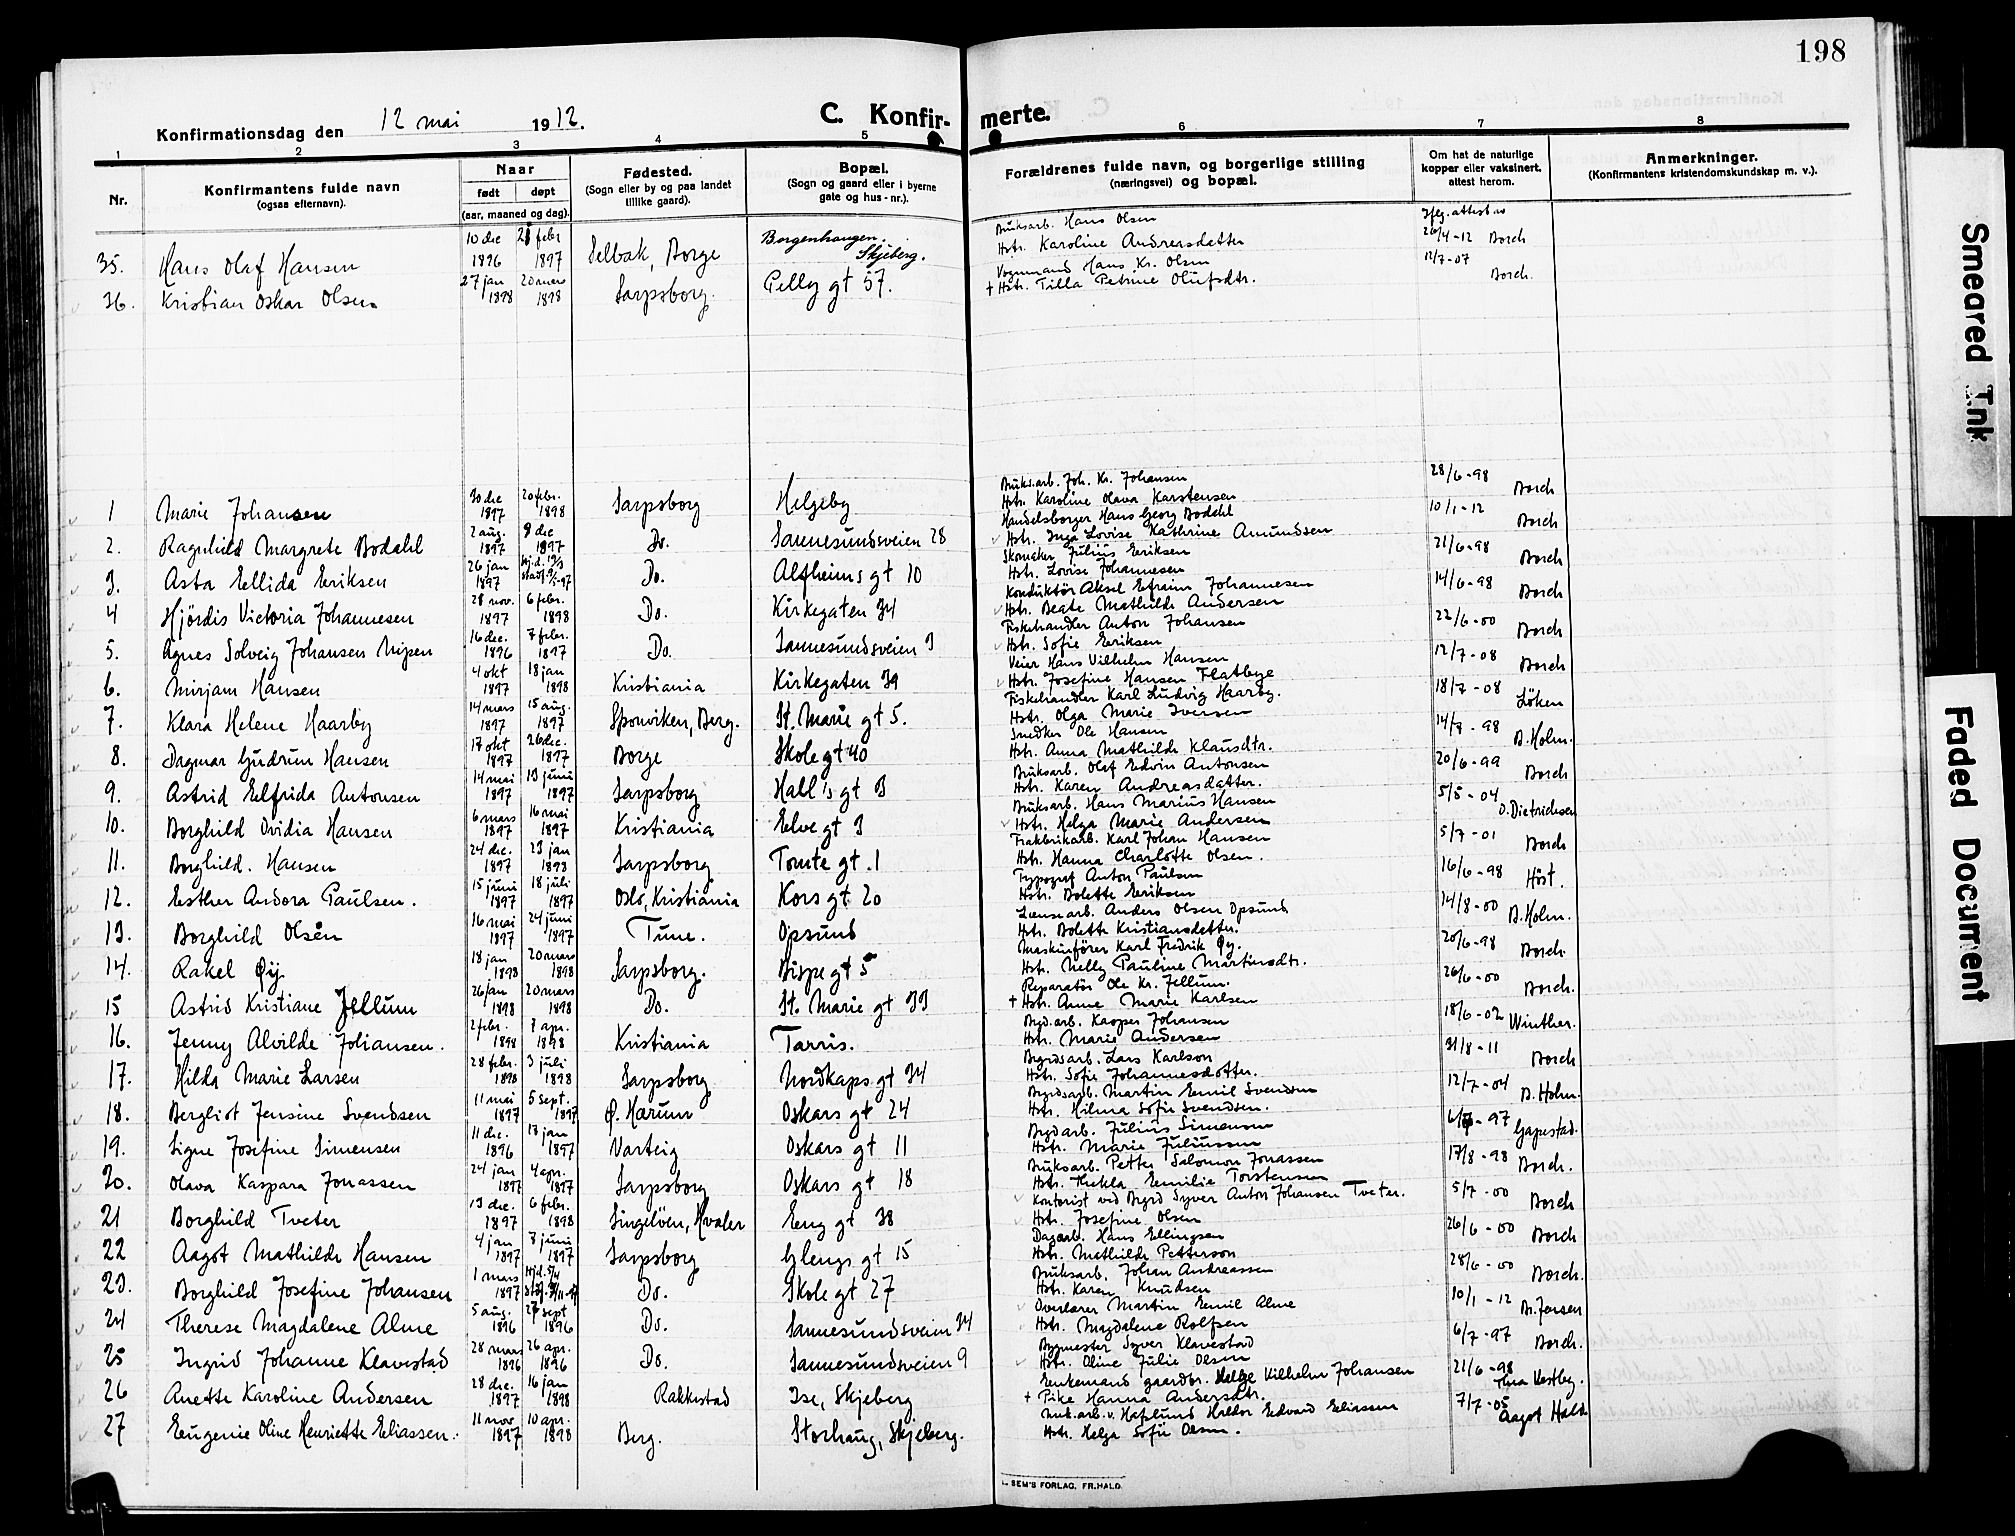 198
Konfirmationsdag den 12 mai 1912.
C. Konfir- merte.
1 2 3 4 5 6 7 8
Nr.
Konfirmantens fulde navn
(ogsaa efternavn).
Naar
født døpt
(aar, maaned og dag).
Fødested.
(Sogn eller by og paa landet
tillike gaard).
Bopæl.
(Sogn og gaard eller i byerne
gate og hus-nr.).
Forældrenes fulde navn, og borgerlige stilling
(næringsvei) og bopæl.
Om hat de naturlige
kopper eller vaksinert.
attest herom.
Anmerkninger.
(Konfirmantens kristendomskundskap m. v.).
35. Hans Olaf Hansen 10 dec 1896 febr 1897 Selbak, Borge Borgenhaugen, Skjeberg. Bruksarb. Hans Olsen
Hstr. Karoline Andreasdatter 26/4-12 Borch
36. Kristian Oskar Olsen 27 jan 1898 20 mars 1898 Sarpsborg. Pellygt 57. Vognmand Hans Kr. Olsen
† Hstr. Tilla Petrine Olufsdtr. 12/7-07 Borch.
1 Marie Johansen 30 dec 1897 20 febr. 1898 Sarpsborg Helgeby Bruksarb. Joh. Kr. Johansen
Hstr. Karoline Olava Karstensen 28/6-98 Borch
2. Ragnhild Margrete Bodahl 2 aug. 1897 8 dec 1897 Do. Sannesundsveien 28 Handelsborger Hans Georg Bodahl
Hstr. Inga Lovise Kathrine Amundsen 10/1-12 Borch
3. Asta Ellida Eriksen 26 jan 1897 Do. Alfheims gt 10 Skomaker Julius Eriksen
Hstr. Lovise Johannesen 21/6-98 Borch
4 Hjördis Victoria Johannesen 28 nov. 1897 6 febr. 1898 Do. Kirkegaten 34 Konduktör Aksel Efraim Johannesen
Hstr. Beate Mathilde Andersen 14/6-98 Borch
5. Agnes Solveig Johansen Nipen 16 dec. 1896 7 febr. 1897 Do. Sannesundsveien 3 Fiskehandler Anton Johansen
Hstr. Sofie Eriksen 22/6-00 Borch
6. Mirjam Hansen 4 okt 1897 18 jan 1898 Kristiania Kirkegaten 39 Veier Hans Vilhelm Hansen
Hstr. Josefine Hansen Flatbye 12/7-08 Borch
7. Klara Helene Haarby 14 mars 1897 15 aug. 1897 Sponviken, Berg. St. Marie gt 5. Fiskehandler Karl Ludvig Haarby.
Hstr. Olga Marie Iversen 18/7-08 Löken
8. Dagmar Gudrun Hansen 17 okt 1897 26 dec. 1897 Borge Skole gt 40 Snedker Ole Hansen
Hstr. Anna Mathilde Klausdtr. 14/8-98 B. Holm.
9. Astrid Elfrida Antonsen 14 mai 1897 13 juni 1897 Sarpsborg Hall's gt 3 Bruksarb. Olaf Edvin Antonsen
Hstr. Karen Andreasdatter. 20/6-99 Borch
10. Borghild Ovidia Hansen 6 mars 1897 16 mai 1897 Kristiania Elvegt 3 Bruksarb. Hans Marius Hansen
Hstr. Helga Marie Andersen 5/5-04 O. Dietrichsen
11. Borghild. Hansen 24 dec. 1897 23 jan 1898 Sarpsborg Tomte gt. 1 Frabrikarb. Karl Johan Hansen
Hstr. Hanna Charlotte Olsen. 5/7-01 Borch
12. Esther Andora Paulsen. 15 juni 1897 18 juli 1897 Oslo, Kristiania Kors gt. 20 Typograf Anton Paulsen
Hstr. Bolette Eriksen 16/6-98 Höst.
13. Borghild Olsen 16 mai 1897 24 juni 1897 Tune. Opsund Lensearb. Anders Olsen Opsund
Hstr. Bolette Kristiansdatter. 14/8-00 B. Holm.
14. Rakel Øy. 18 jan 1898 20 mars 1898 Sarpsborg. Bispegt 5 Maskinfører Karl Fredrik Øy.
Hstr. Nelly Pauline Martinsdtr. 20/6-98 Borch.
15 Astrid Kristiane Jellum 26 jan 1898 20 mars 1898 Do. St. Marie gt 33 Reparatør Ole Kr. Jellum.
† Hstr. Anne Marie Karlsen 26/6-00 Borch.
16. Jenny Alvilde Johansen. 2 febr. 1898 apr. 1898 Kristiania Tarris. Brgd.arb. Kasper Johansen
Hstr. Marie Andersen 18/6-02 Winther.
17. Hilda Marie Larsen 28 febr. 1898 3 juli 1898 Sarpsborg Nordkaps gt 34 Brgdsarb. Lars Karlson
Hstr. Sofie Johannesdotter. 31/8-11 Borch
18. Bergliot Jensine Svendsen 11 mai 1897 5 sept. 1897 Ø. Hærum Oskars gt 24 Brgdsarb. Martin Emil Svendsen
Hstr. Hilma Sofie Svendsen. 12/7-04 B. Holm.
19. Signe Josefine Simensen 11 dec. 1896 jan 1897 Varteig Oskars gt 11 Brgdarb. Julius Simensen
Hstr. Marie Juliussen Gapestad.
20. Olava Kaspara Jonassen 24 jan 1897 4 apr. 1897 Sarpsborg Oskars gt 18 Bruksarb. Petter Salomon Jonassen
Hstr. Thekla Emilie Torstensen 17/8-98 Borch.
21 Borghild Tveter 13 dec. 1897 6 febr. 1898 Singelöen, Hvaler Eng gt 38 Kontorist ved Brgrd Syver Anton Johansen Tveter.
Hstr. Josefine Olsen 5/7-00 Borch
22 Aagot Mathilde Hansen 4 jan 1897 juni 1897 Sarpsborg Glengs gt 15 Dagarb. Hans Ellingsen
Hstr. Mathilde Petterson 26/6-00 Borch
23. Borghild Josefine Johansen 1 mars 1897 Do. Skole gt 27 Bruksarb. Johan Andreassen
Hstr. Karen Knudsen 28/6-00 Borch.
24 Therese Magdalene Alme 5 aug. 1896 27 sept 1896 Do. Sannesundsveien 34 Overlærer Martin Emil Alme
Hstr. Magdalene Rolfsen 10/1-12 Jensen
25 Ingrid Johanne Klavestad 28 mars 1896 26 apr. 1896 Do. Sannesundsveien 9 Bygmester Syver Klavestad
Hstr. Oline Julie Olsen 6/7-97 Borch.
26 Anette Karoline Andersen 28 dec. 1897 16 jan 1898 Rakkestad Ise, Skjeberg Enkemand gaardbr. Helge Vilhelm Johansen
† Pike Hanna Andersdtr. 21/6-98 Thea Vestby.
27 Eugenie Oline Henriette Eliassen. 11 nov 1897 10 apr. 1898 Berg. Storhaug, Skjeberg. Bruk.arb. v. Hafslund Haldor Edvard Eliassen
Hstr. Helga Sofie Olsen. 7/7-05 Aagot Holth
SEM'S FORLAG. FR.HALD.
Smeared Ink
Faded Document